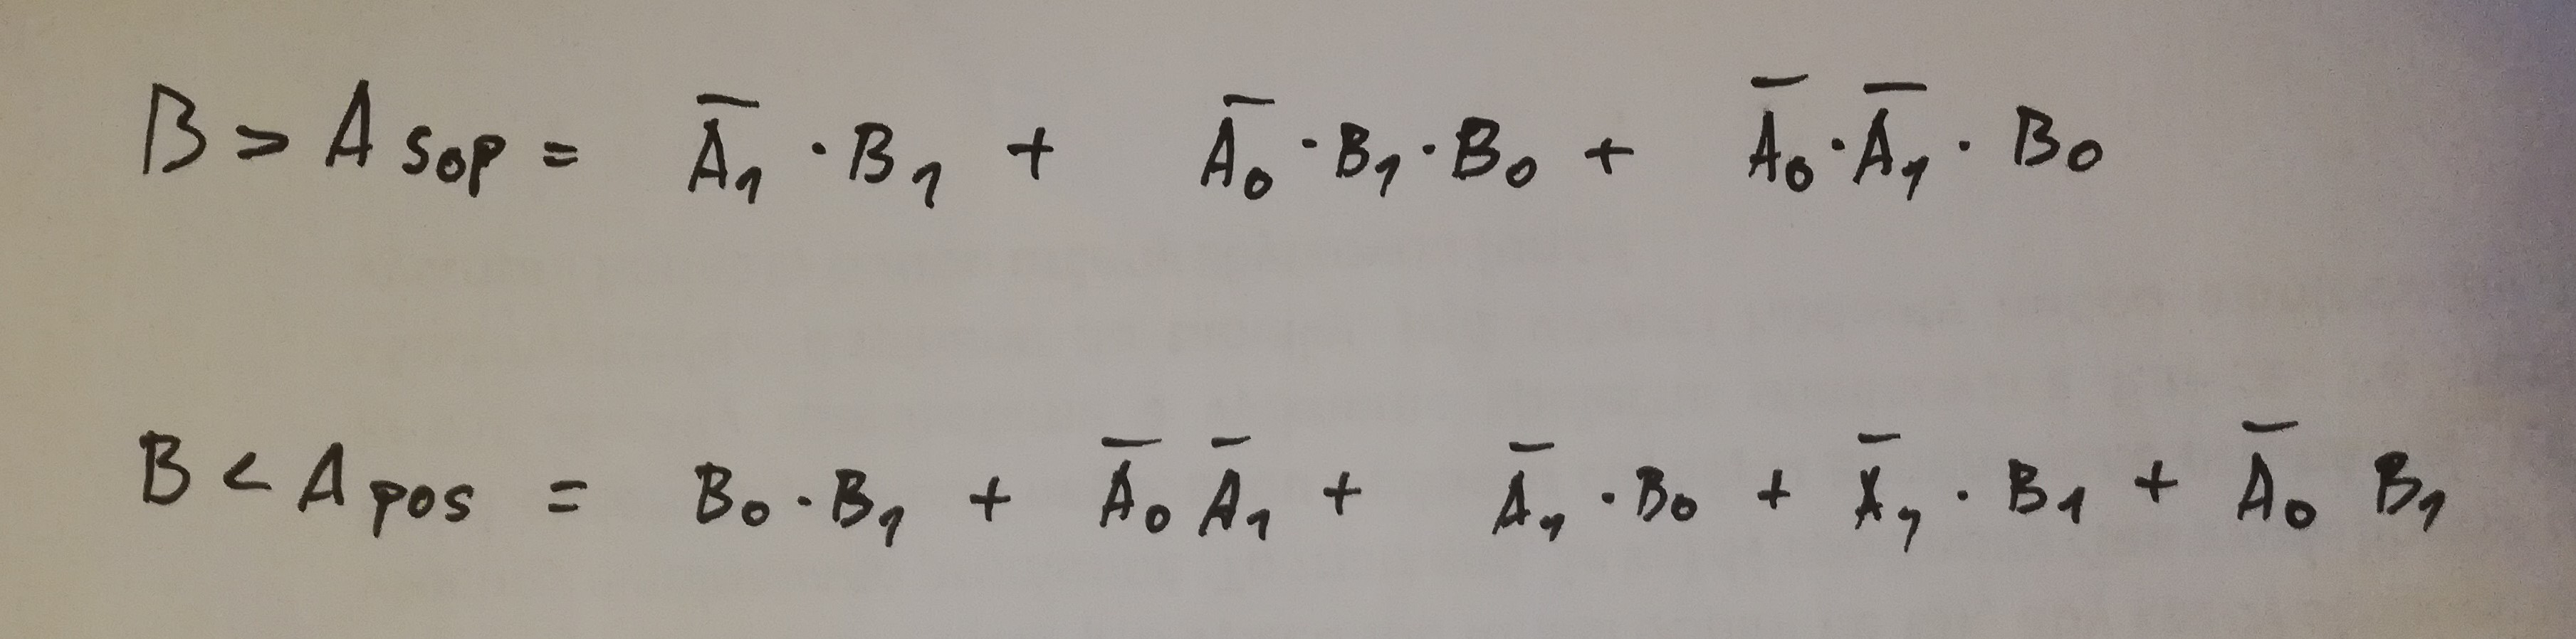 B > A SOP = A̅₁ · B₁ + A̅₀ · B₁ · B₀ + A̅₀ · A̅₁ · B₀
B < A POS = B₀ · B₁ + A̅₀ A̅₁ + A̅₁ · B₀ + A̅₁ · B₁ + A̅₀ B₁